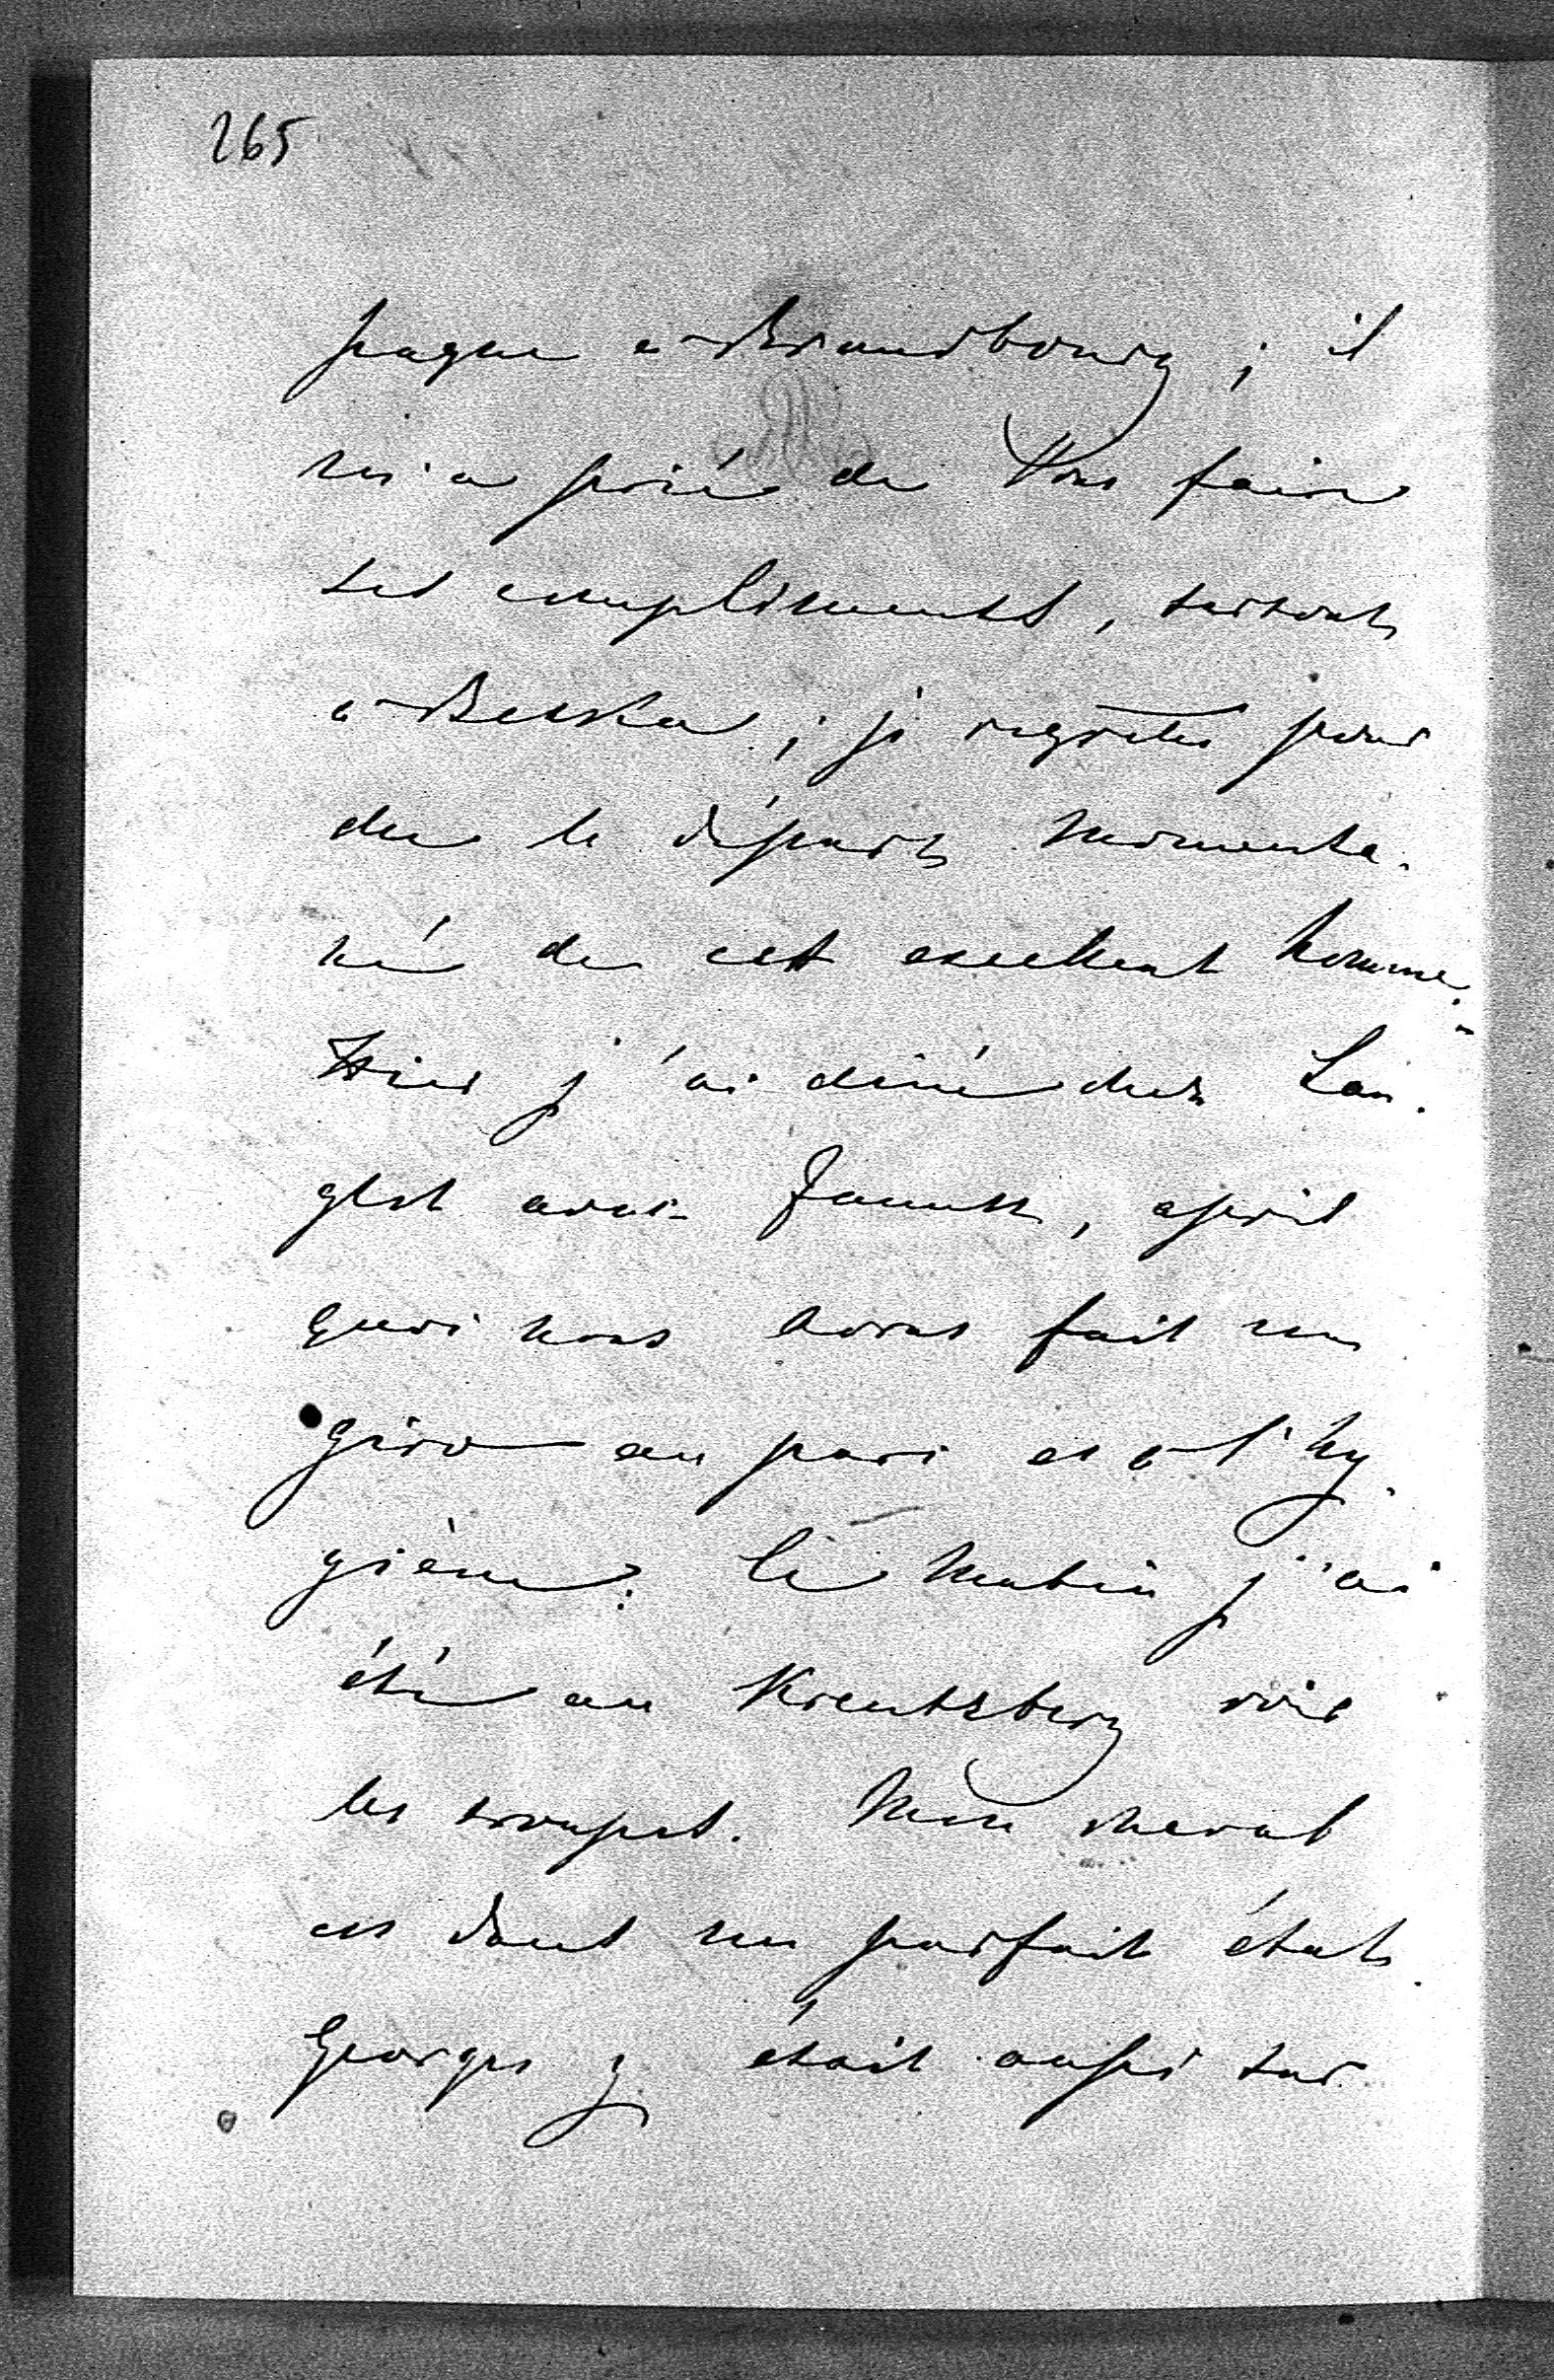 265
pagne à Brandbourg ; il
m'a prié de Vous faire
ses compliments, surtout
à Becka ; je regrette pour
eux le départ momenta-
né de cet excellent homme.
Hier j'ai diné chez Lan-
glet avec , après
quoi nous avons fait un
giro au parc et à l'hy-
giène. Ce matin j'ai
été au Kreutzberg voir
les troupes. Mon cheval
est dans un parfait état.
Georges y était aussi sur